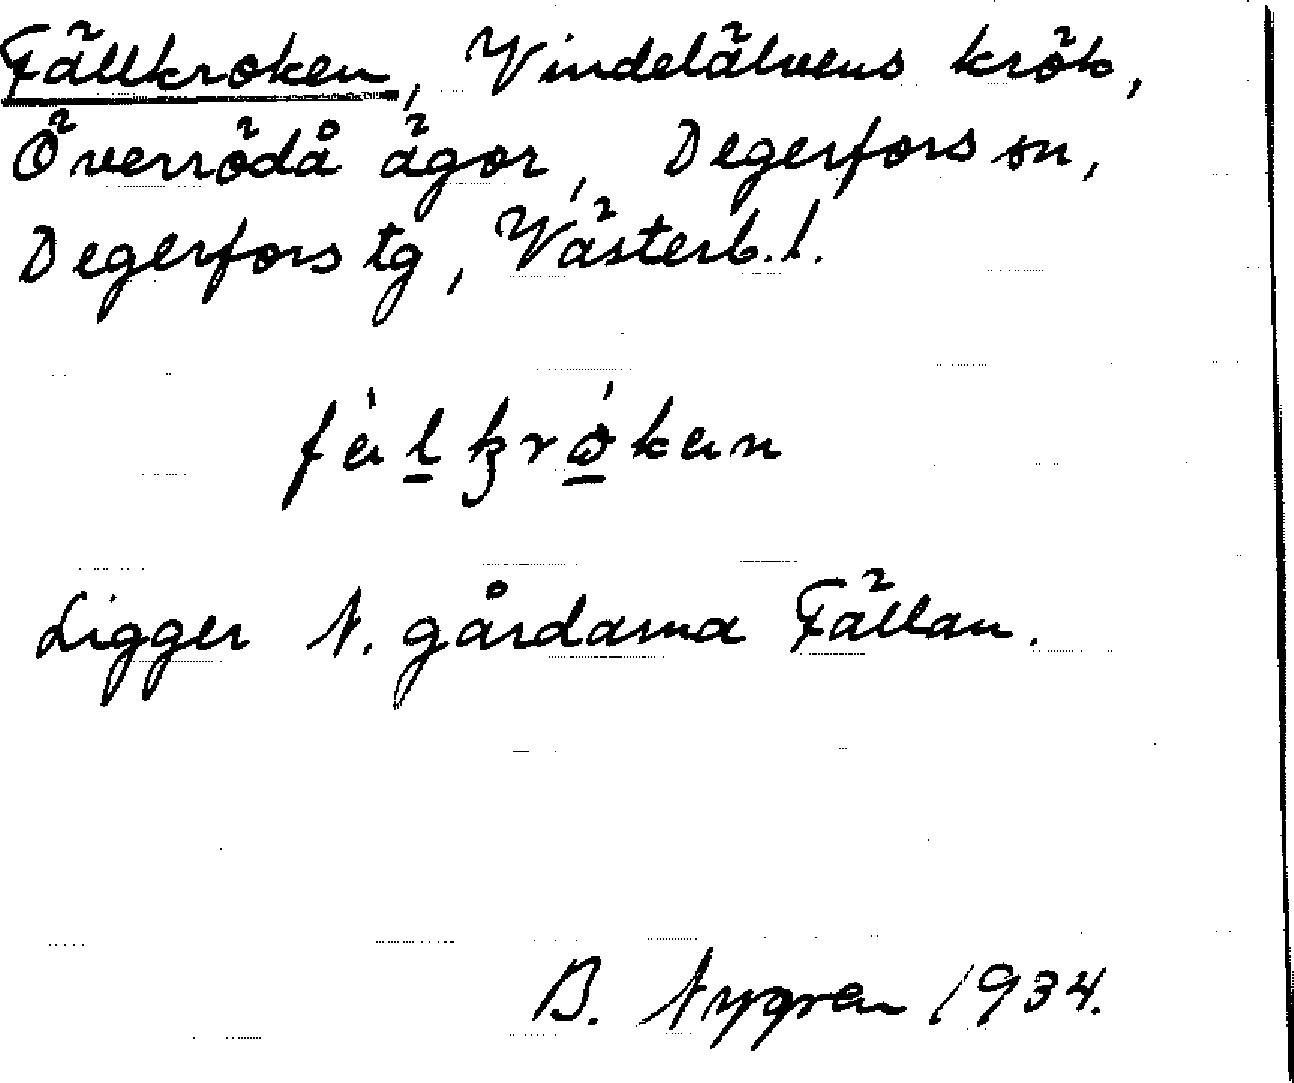 Fällkroken, Vindelälvens krök,
Överrödå ägor, Degerfors sn,
Degerfors tg, Västerb. l.
Ligger N. gårdarna Fällan.
B. Nygren 1934.